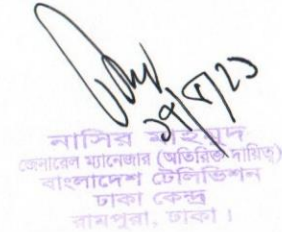 নাসির মাহমুদ
জেনারেল ম্যানেজার (অতিরিক্ত দায়িত্ব)
বাংলাদেশ টেলিভিশন
ঢাকা কেন্দ্র
রামপুরা, ঢাকা।